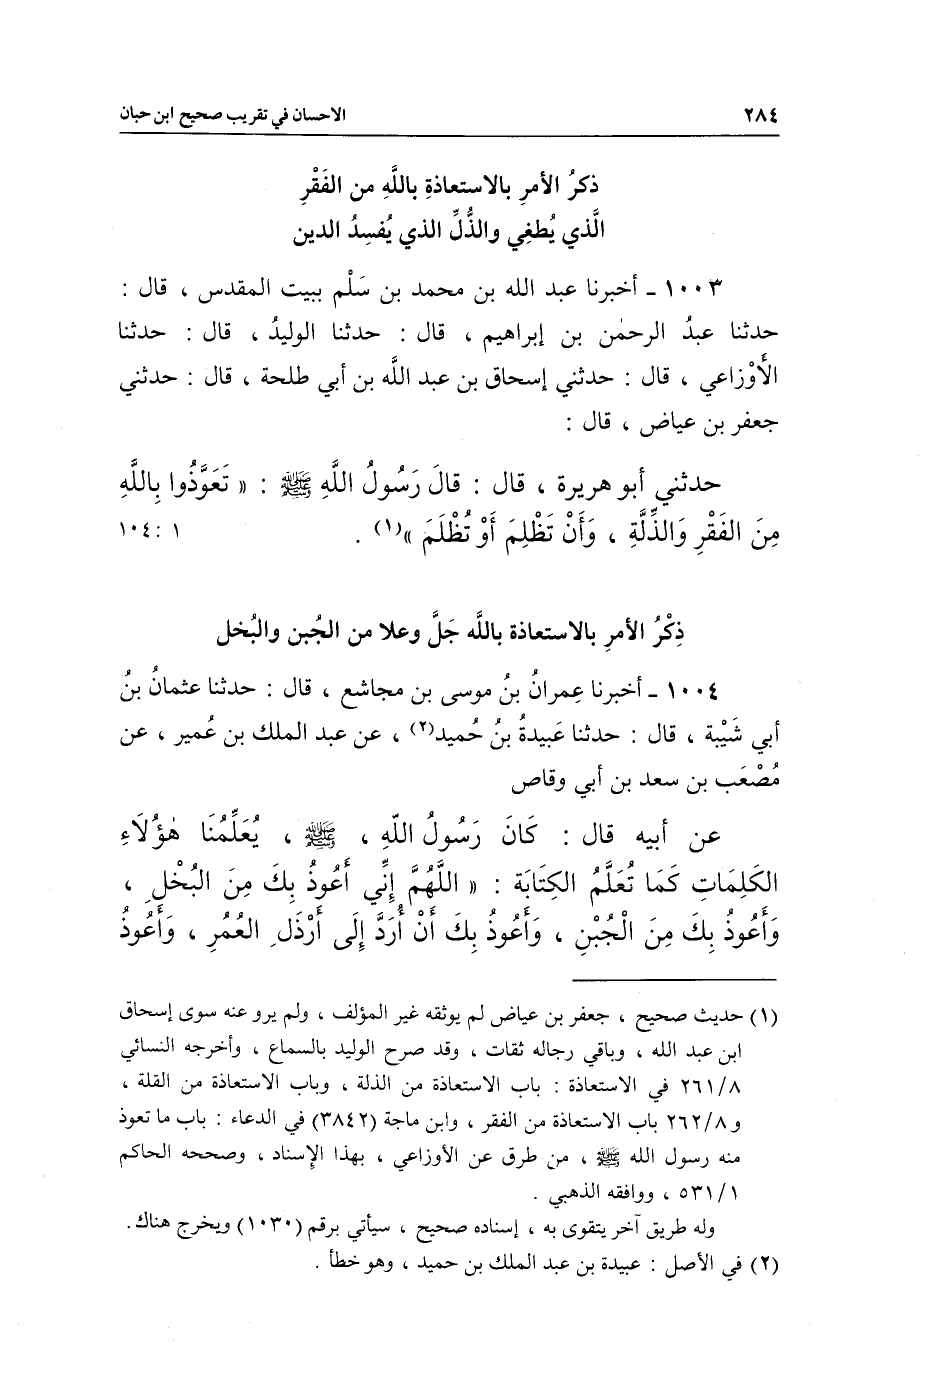 ٢٨٤ الاحسان في تقريب صحيح ابن حبان
ذكرُ الأمرِ بالاستعاذةِ باللَّهِ من الفَقْرِ
الَّذي يُطغِي والذُّلِّ الذي يُفسِدُ الدين
١٠٠٣ ـ أخبرنا عبد الله بن محمد بن سَلْم ببيت المقدس ، قال :
حدثنا عبدُ الرحمٰن بن إبراهيم ، قال : حدثنا الوليدُ ، قال : حدثنا
الأَوْزاعي ، قال : حدثني إسحاق بن عبد اللَّه بن أبي طلحة ، قال : حدثني
جعفر بن عياض ، قال :
حدثني أبو هريرة ، قال : قالَ رَسُولُ اللَّهِ ﷺ : « تَعَوَّذُوا بِاللَّهِ
مِنَ الفَقْرِ وَالذِّلَّةِ ، وَأَنْ تَظْلِمَ أَوْ تُظْلَمَ »(١) . ١ : ١٠٤
ذِكْرُ الأمرِ بالاستعاذة باللَّه جَلَّ وعلا من الجُبن والبُخل
١٠٠٤ ـ أخبرنا عِمرانُ بنُ موسى بن مجاشع ، قال : حدثنا عثمانُ بنُ
أبي شَيْبة ، قال : حدثنا عَبيدةُ بنُ حُميد(٢) ، عن عبد الملك بن عُمير ، عن
مُصْعَب بن سعد بن أبي وقاص
عن أبيه قال : كَانَ رَسُولُ اللّهِ ، ﷺ ، يُعَلِّمُنَا هٰؤُلَاءِ
الكَلِمَاتِ كَمَا تُعَلَّمُ الكِتَابَة : « اللَّهُمَّ إِنِّي أَعُوذُ بِكَ مِنَ البُخْلِ ،
وَأَعُوذُ بِكَ مِنَ الْجُبْنِ ، وَأَعُوذُ بِكَ أَنْ أُرَدَّ إِلَى أَرْذَلِ العُمُرِ ، وَأَعُوذُ
(١) حديث صحيح ، جعفر بن عياض لم يوثقه غير المؤلف ، ولم يرو عنه سوى إسحاق
ابن عبد الله ، وباقي رجاله ثقات ، وقد صرح الوليد بالسماع ، وأخرجه النسائي
٢٦١/٨ في الاستعاذة : باب الاستعاذة من الذلة ، وباب الاستعاذة من القلة ،
و ٢٦٢/٨ باب الاستعاذة من الفقر ، وابن ماجة (٣٨٤٢) في الدعاء : باب ما تعوذ
منه رسول الله ﷺ ، من طرق عن الأوزاعي ، بهذا الإسناد ، وصححه الحاكم
٥٣١/١ ، ووافقه الذهبي .
وله طريق آخر يتقوى به ، إسناده صحيح ، سيأتي برقم (١٠٣٠) ويخرج هناك.
(٢) في الأصل : عبيدة بن عبد الملك بن حميد ، وهو خطأ .